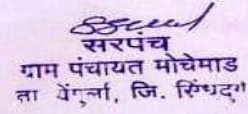 सरपंच
ग्राम पंचायत मोचेमाड
ता वेंगुर्ला, जि. सिंधदुर्ग